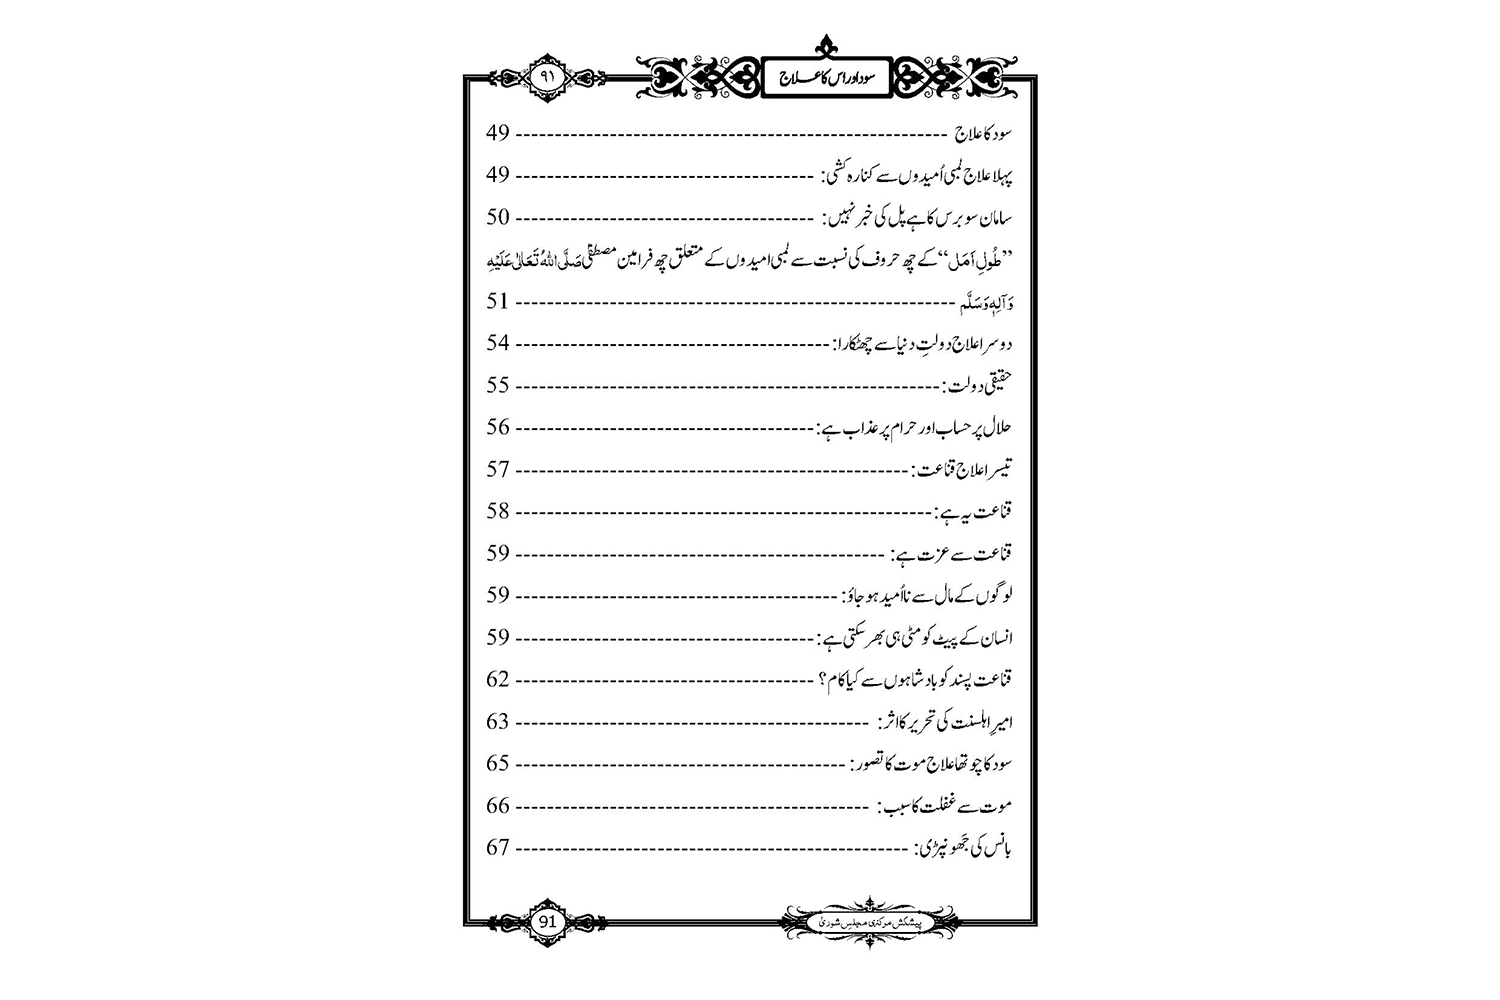 ۹۱
سود اور اس کا علاج
سود کا علاج ------------------------------------------------------- 49
پہلا علاج لمبی اُمیدوں سے کنارہ کشی: -------------------------------------- 49
سامان سو برس کا ہے پل کی خبر نہیں: -------------------------------------- 50
”طُولِ اَمَل“ کے چھ حروف کی نسبت سے لمبی امیدوں کے متعلق چھ فرامین مصطفٰی صَلَّی اللّٰہُ تَعَالٰی عَلَیْہِ
وَاٰلِہٖ وَسَلَّم -------------------------------------------------------- 51
دوسرا علاج دولتِ دنیا سے چھٹکارا: ---------------------------------------- 54
حقیقی دولت: ------------------------------------------------------ 55
حلال پر حساب اور حرام پر عذاب ہے: -------------------------------------- 56
تیسرا علاج قناعت: -------------------------------------------------- 57
قناعت یہ ہے: ----------------------------------------------------- 58
قناعت سے عزت ہے: ----------------------------------------------- 59
لوگوں کے مال سے نااُمید ہو جاؤ: ----------------------------------------- 59
انسان کے پیٹ کو مٹی ہی بھر سکتی ہے: -------------------------------------- 59
قناعت پسند کو بادشاہوں سے کیا کام؟ -------------------------------------- 62
امیرِ اہلسنت کی تحریر کا اثر: --------------------------------------------- 63
سود کا چوتھا علاج موت کا تصور: ------------------------------------------ 65
موت سے غفلت کا سبب: --------------------------------------------- 66
بانس کی جَھونپڑی: -------------------------------------------------- 67
پیشکش مرکزی مجلس شوریٰ
91